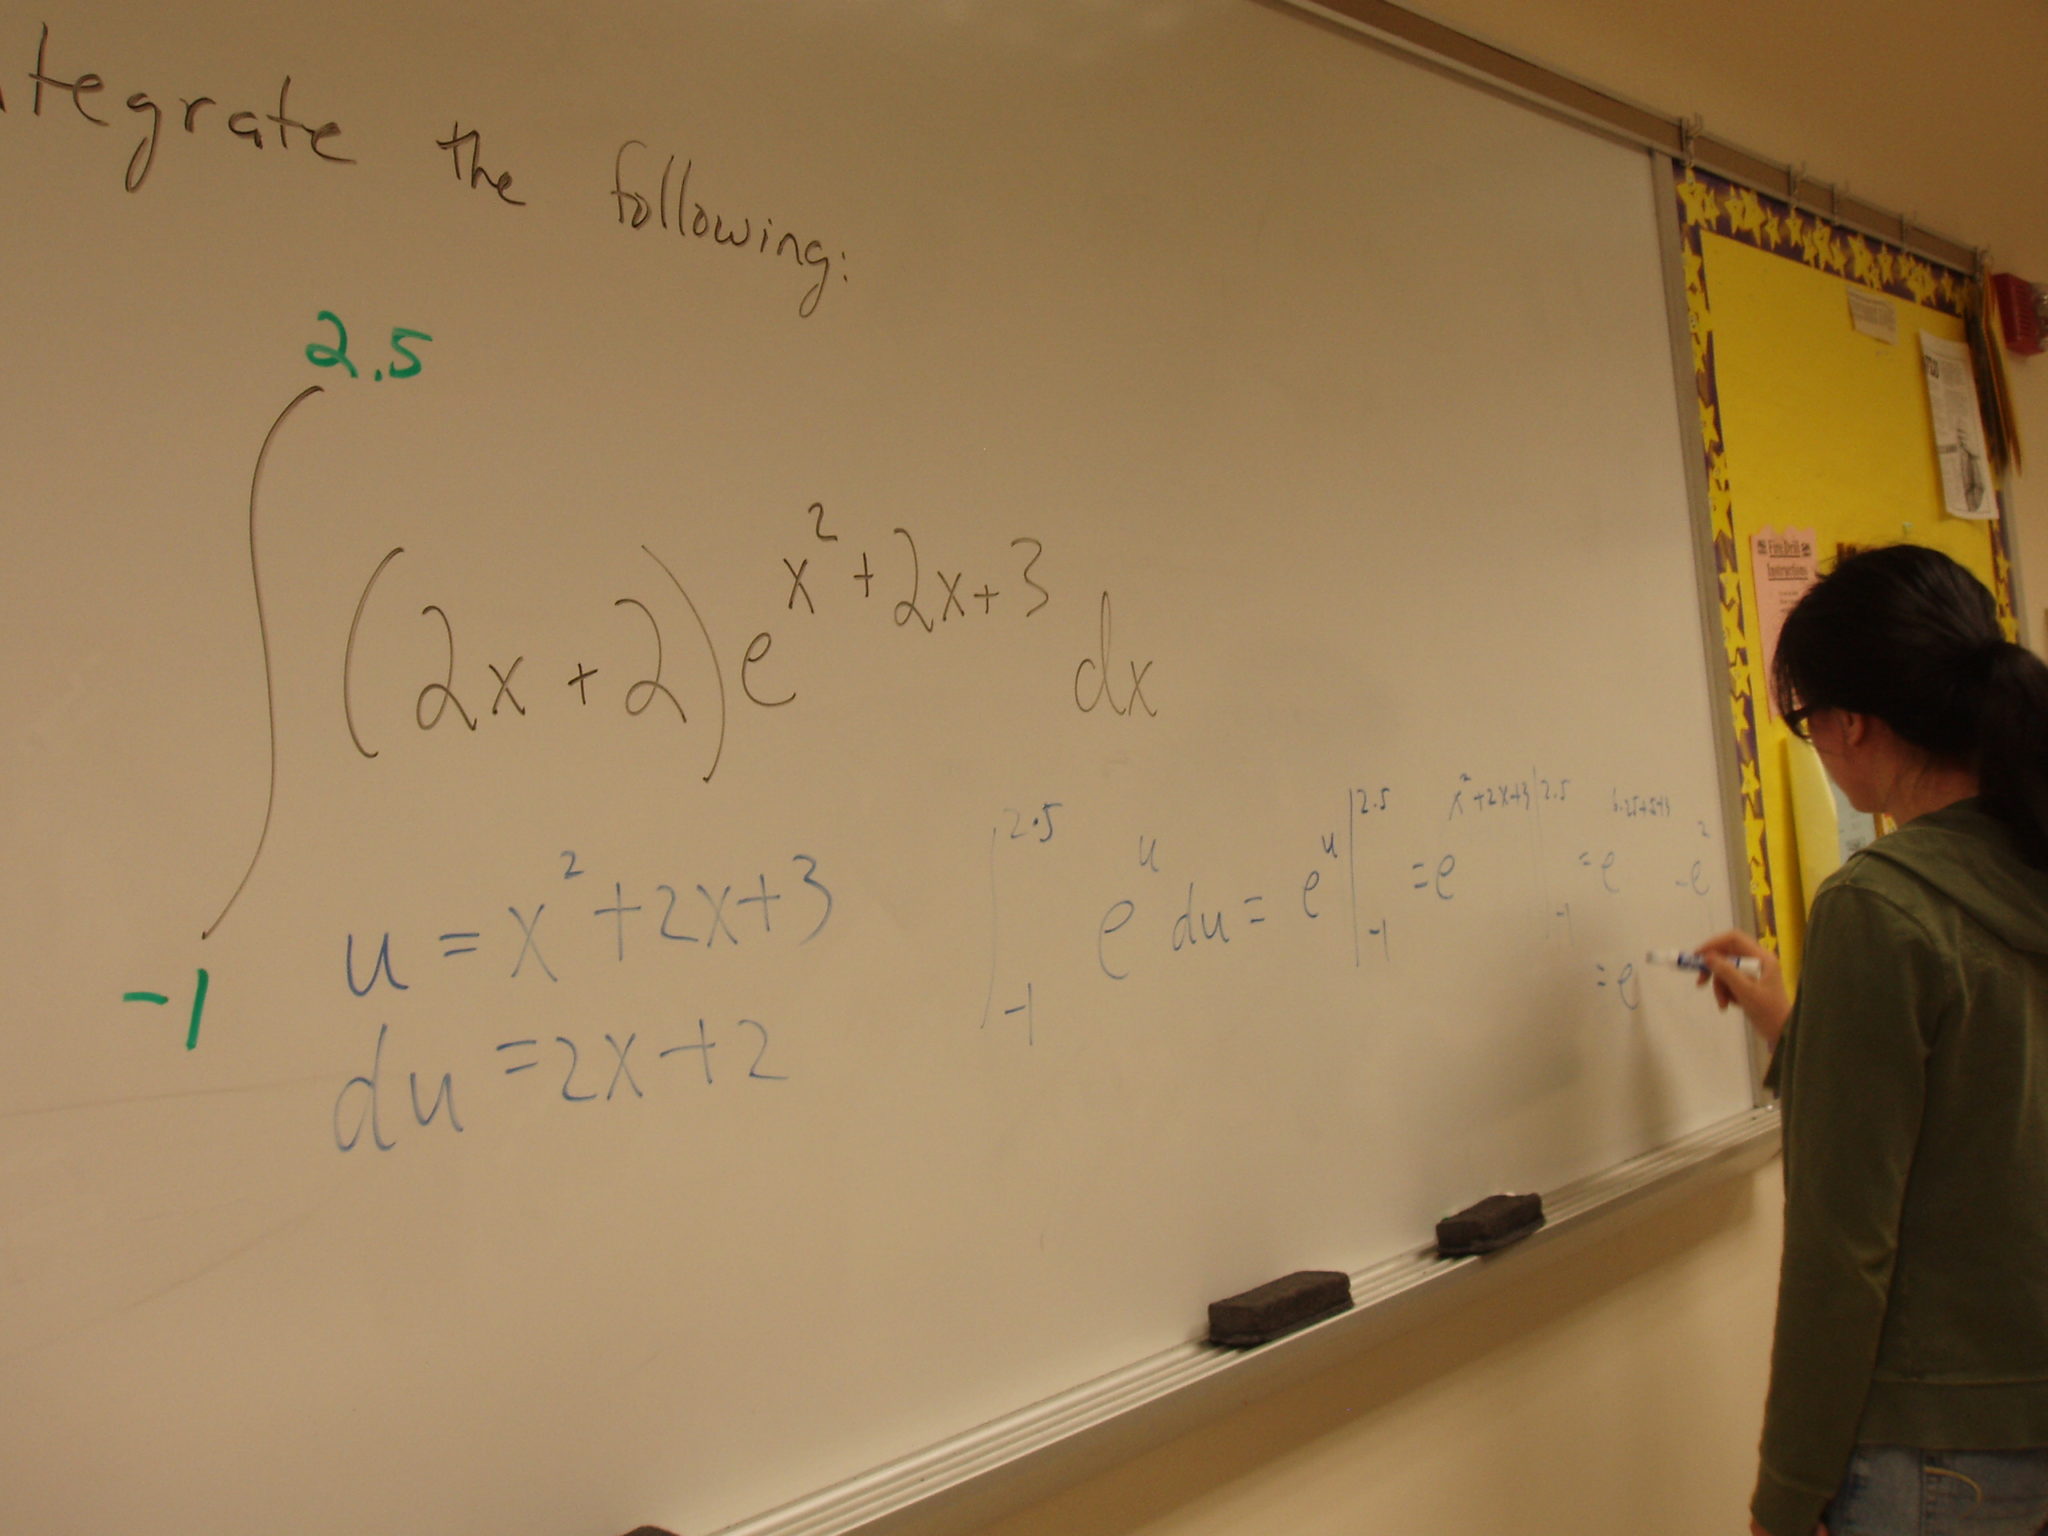 ntegrate the following:
2.5
∫ (2x+2)e^{x²+2x+3} dx
-1
u = x²+2x+3
du = 2x+2
∫_{-1}^{2.5} e^u du = e^u |_{-1}^{2.5} = e^{x²+2x+3} |_{-1}^{2.5} = e^{6.25+5+3} - e^2
= e
Fire Drill
Instructions